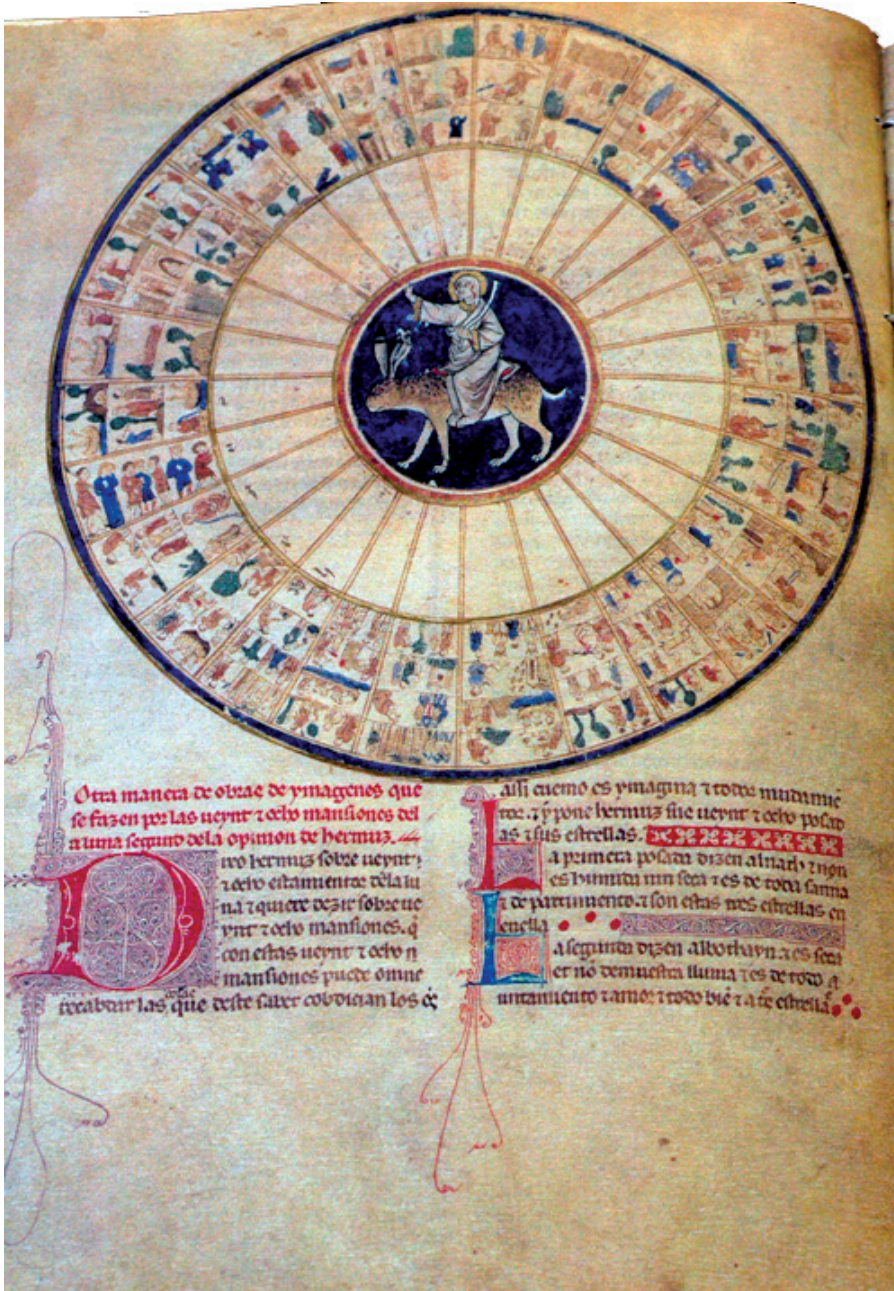 Otra manera de obras de ymagenes que
se fazen por las ueynt ⁊ ocho mansiones del
a luna segunt dela opinion de hermuz.
Dixo hermuz sobre ueynt
⁊ ocho estamientos dela lu
na ⁊ quiere dezir sobre ue
ynt ⁊ ocho mansiones. q̄
con estas ueynt ⁊ ocho
mansiones puede omne
recabdar las que deste saber cobdician los
assi cuemo es ymagina ⁊ todos mudamie
tos. ⁊ y pone hermuz sus ueynt ⁊ ocho posad
as ⁊ sus estrellas.
La primera posada dizen alnath ⁊ non
es humida nin seca ⁊ es de toda sanna
⁊ de partimiento. ⁊ son estas tres estrellas en
enella
La segunda dizen albothayn. ⁊ es seca
et nō demuestra lluuia ⁊ es de todo a
iuntamiento ⁊ amor ⁊ todo biē ⁊ a estrellas